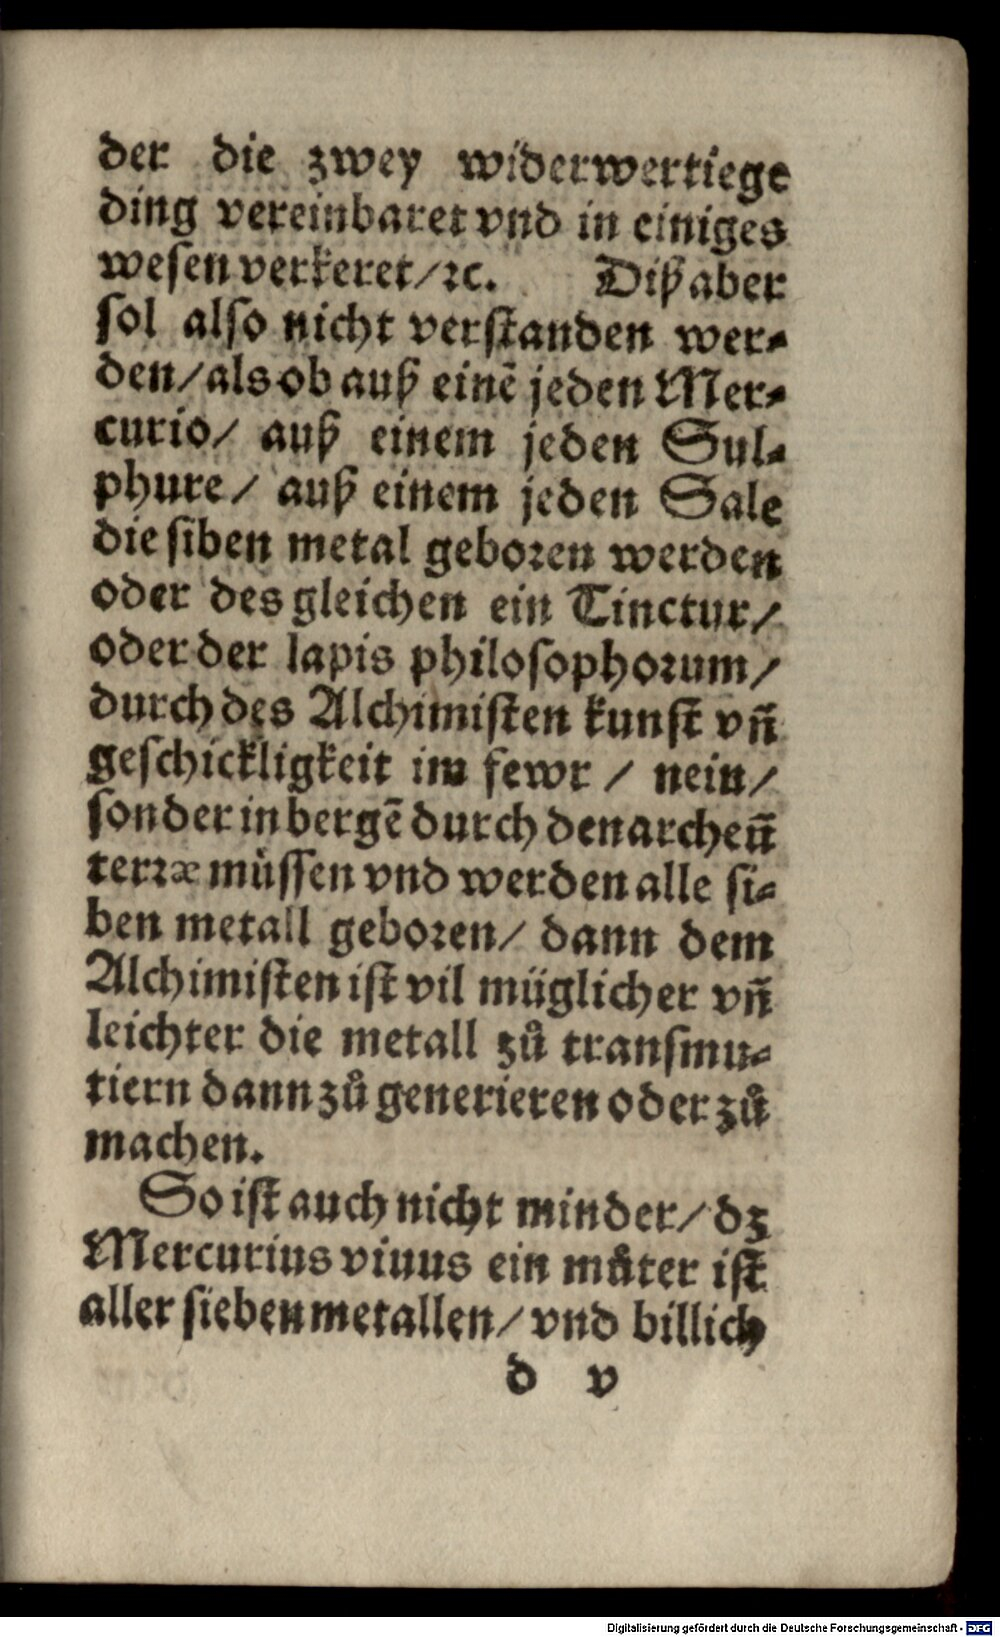 der die zwey widerwertiege
ding vereinbaret vnd in einiges
wesen verkeret/ ꝛc. Diß aber
sol also nicht verstanden wer⸗
den/ als ob auß einē jeden Mer⸗
curio/ auß einem jeden Sul⸗
phure/ auß einem jeden Sale
die siben metal geboren werden
oder des gleichen ein Tinctur/
oder der lapis philosophorum/
durch des Alchimisten kunst vñ
geschickligkeit im fewr / nein/
sonder in bergē durch den archeū
terræ müssen vnd werden alle si⸗
ben metall geboren/ dann dem
Alchimisten ist vil müglicher vñ
leichter die metall zů transmu⸗
tiern dann zů generieren oder zů
machen.
So ist auch nicht minder/ dz
Mercurius viuus ein můter ist
aller sieben metallen/ vnd billich
d v
Digitalisierung gefördert durch die Deutsche Forschungsgemeinschaft - DFG